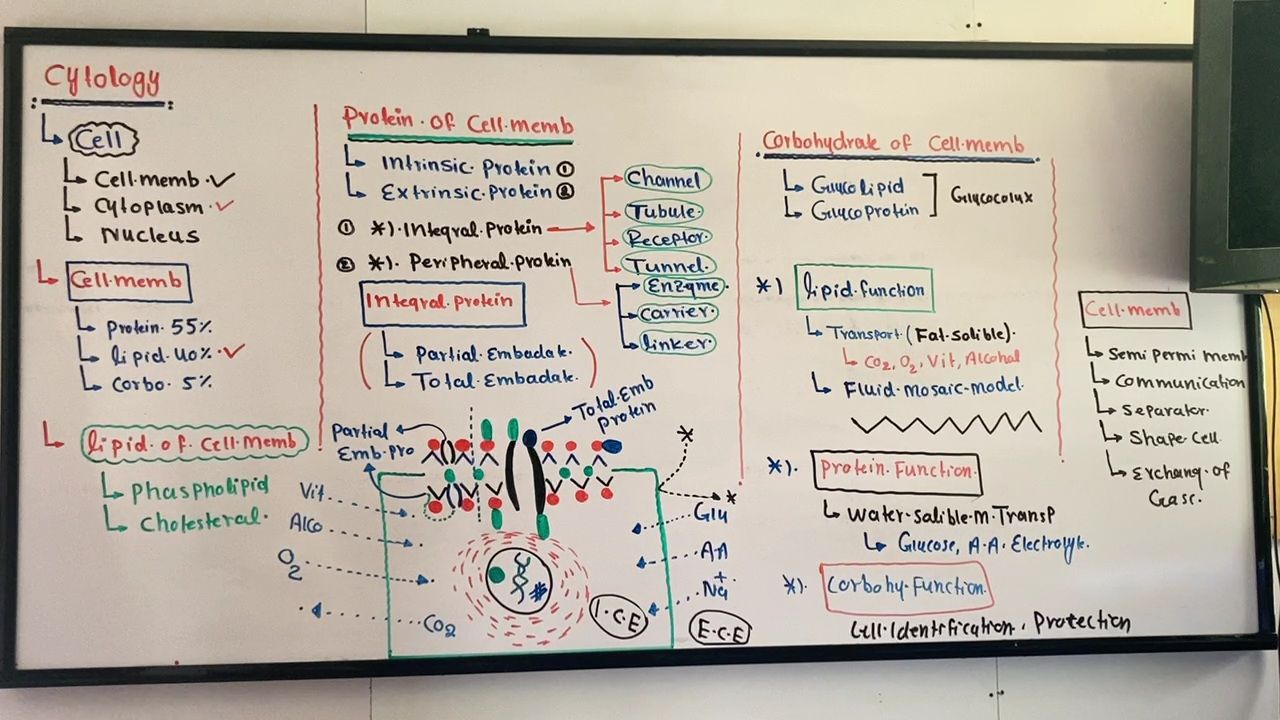 Cytology
Cell
Cell.memb.
Cytoplasm.
Nucleus
Cell.memb
Protein.55%
lipid.40%.
Carbo. 5%
lipid.of.Cell.Memb
Phaspholipid
Cholesteral.
Protein.of Cell.memb
Intrinsic.Protein ①
Extrinsic.Protein ②
① *).Integral.Protein
② *). Peripheral.Protein
Channel
Tubule.
Receptor.
Tunnel.
Enzyme.
Carrier.
linker.
Integral.Protein
Partial.Embadak.
Total.Embadak.
Partial
Emb.Pro
Total.Emb
Protein
Vit
Alco
O2
CO2
*
*
Glu
A.A
Na+
I.C.E
E.C.E
Carbohydrate of Cell.memb
Glycolipid
Glycoprotein
Glycocolux
*) lipid.function
Transport.(Fat.salible).
CO2, O2, Vit, Alcohal
Fluid.mosaic.model.
*). Protein.Function.
Water.salible.M.Transp
Glucose, A.A. Electrolyte.
*). Carbohy.Function.
Cell.Identification. Protection
Cell.memb
Semi Permi Memb
Communication
Separator.
Shape.Cell.
Exchang.of
Gasc.